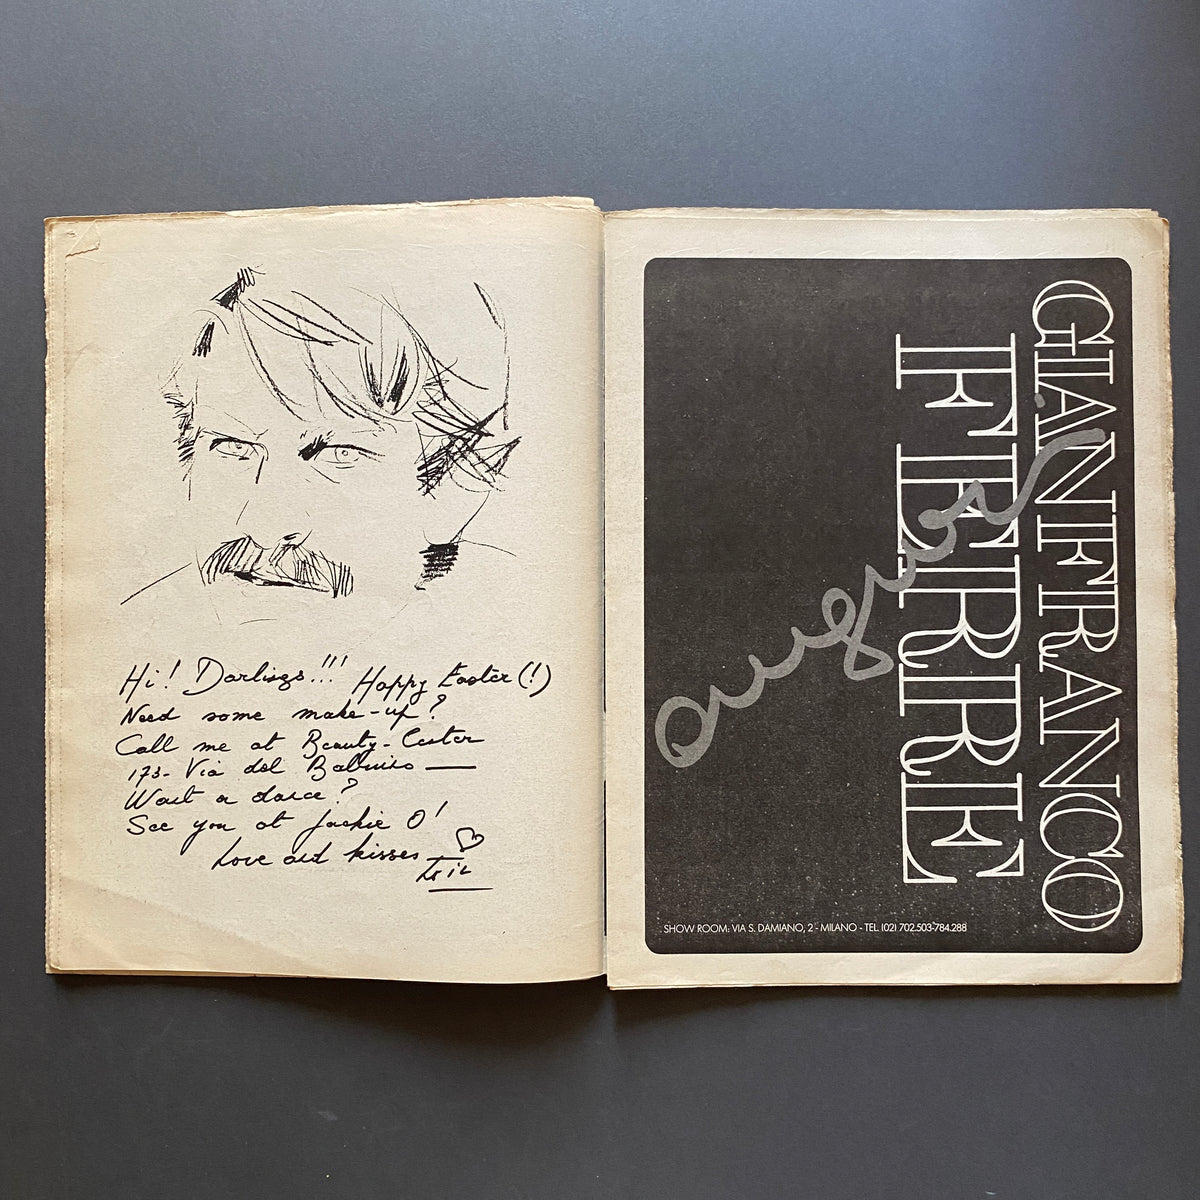 Hi! Darlings!!! Happy Easter (!)
Need some make-up?
Call me at Beauty-Center
173- Via del Babuino —
Want a dance?
See you at Jackie O!
Love and kisses
GIANFRANCO
FERRE
auguri
SHOW ROOM: VIA S. DAMIANO, 2 - MILANO - TEL (02) 702.503-784.288